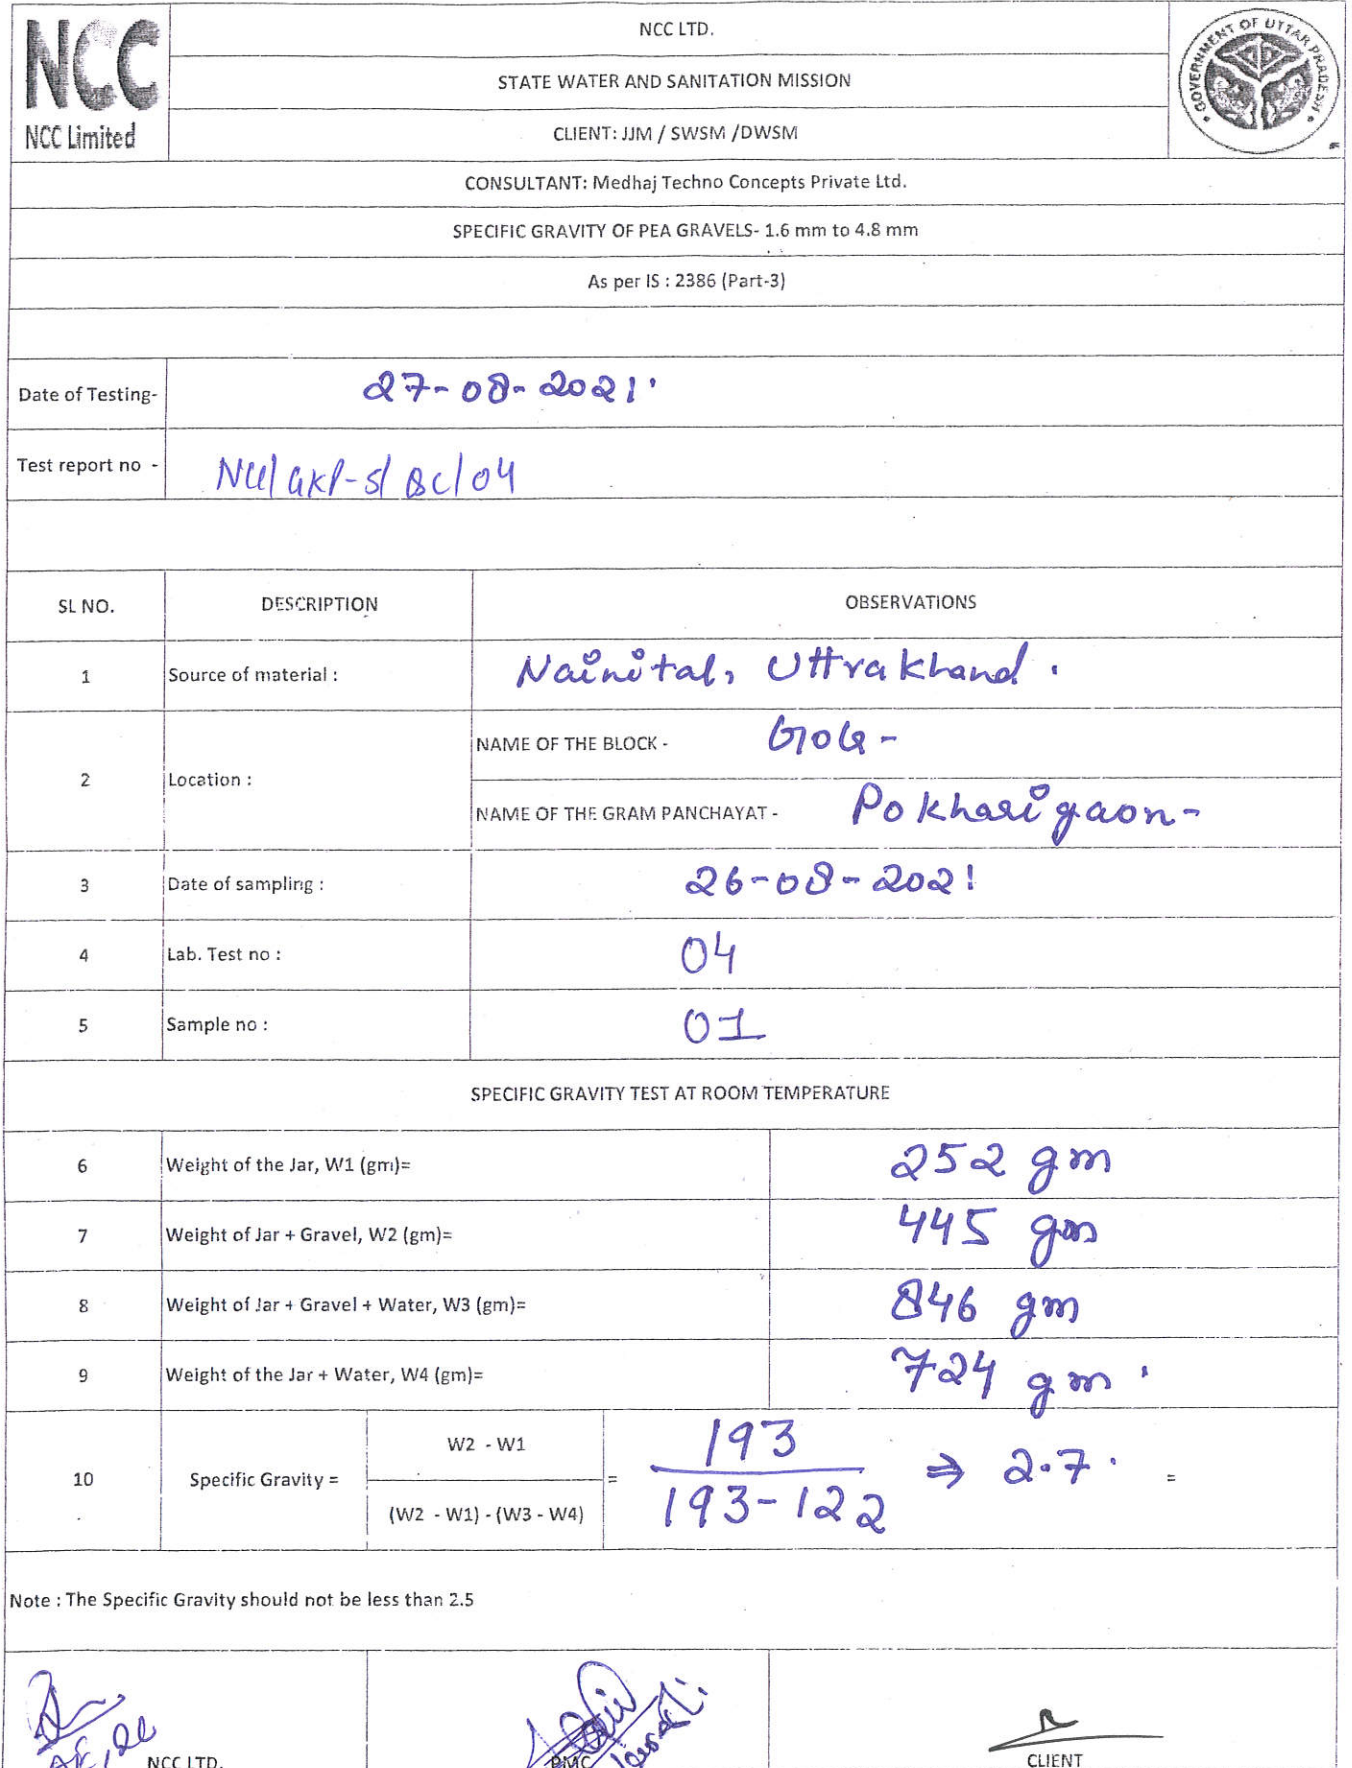 NCC
NCC Limited
NCC LTD.
STATE WATER AND SANITATION MISSION
CLIENT: JJM / SWSM /DWSM
GOVERNMENT OF UTTAR PRADESH
CONSULTANT: Medhaj Techno Concepts Private Ltd.
SPECIFIC GRAVITY OF PEA GRAVELS- 1.6 mm to 4.8 mm
As per IS : 2386 (Part-3)
Date of Testing- 27-08-2021.
Test report no - /04
SL NO. DESCRIPTION OBSERVATIONS
1 Source of material : Nainital, Uttrakhand.
2 Location : NAME OF THE BLOCK -
NAME OF THE GRAM PANCHAYAT - Pokharigaon-
3 Date of sampling : 26-08-2021
4 Lab. Test no : 04
5 Sample no : 01
SPECIFIC GRAVITY TEST AT ROOM TEMPERATURE
6 Weight of the Jar, W1 (gm)= 252 gm
7 Weight of Jar + Gravel, W2 (gm)= 445 gm
8 Weight of Jar + Gravel + Water, W3 (gm)= 846 gm
9 Weight of the Jar + Water, W4 (gm)= 724 gm.
W2 - W1 193
10 Specific Gravity = = ⇒ 2.7. =
(W2 - W1) - (W3 - W4) 193-122
Note : The Specific Gravity should not be less than 2.5
NCC LTD. PMC CLIENT